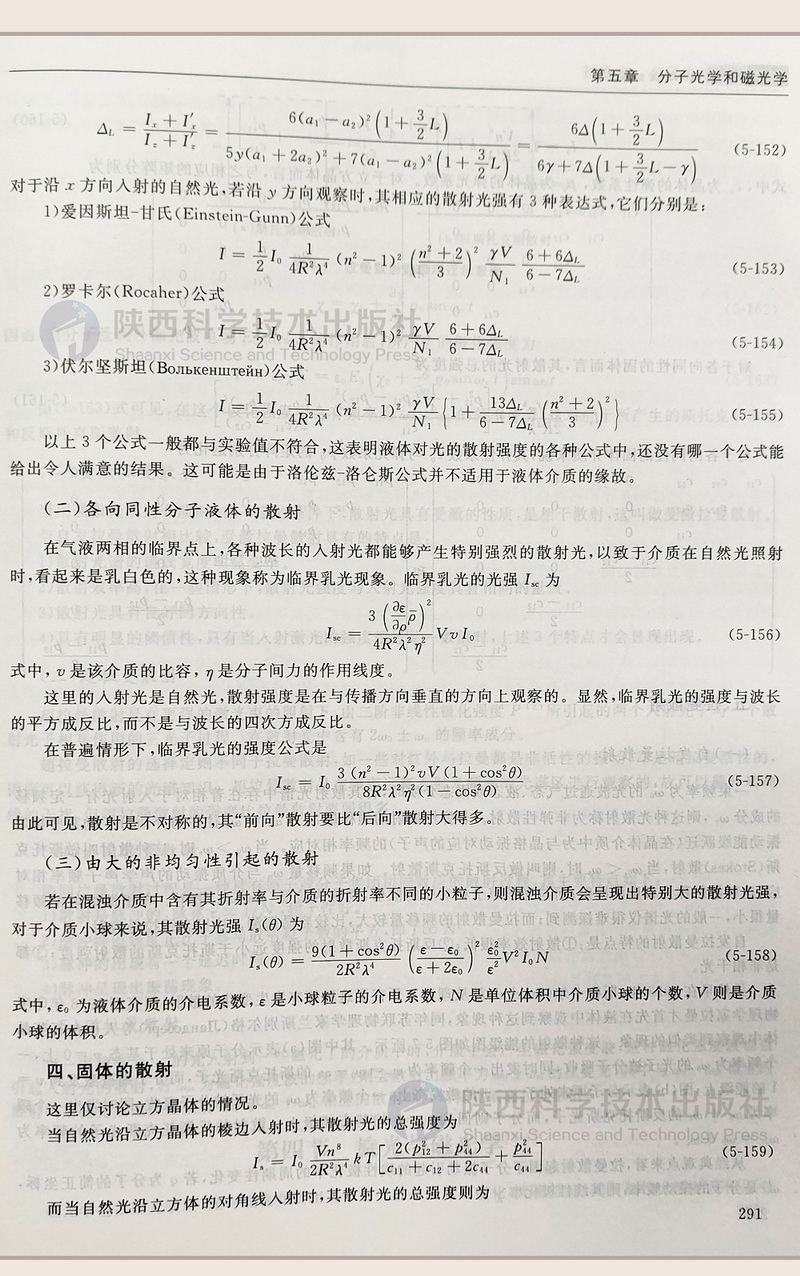 第五章 分子光学和磁光学
Δ_L = (I_x + I'_x)/(I_z + I'_z) = 6(a₁ − a₂)²(1 + (3/2)L) / [5y(a₁ + 2a₂)² + 7(a₁ − a₂)²(1 + (3/2)L)] = 6Δ(1 + (3/2)L) / [6γ + 7Δ(1 + (3/2)L − γ)] (5-152)
对于沿 x 方向入射的自然光,若沿 y 方向观察时,其相应的散射光强有 3 种表达式,它们分别是:
1)爱因斯坦-甘氏(Einstein-Gunn)公式
I = (1/2) I₀ (1/(4R²λ⁴)) (n² − 1)² ((n² + 2)/3)² (γV/N₁) (6 + 6Δ_L)/(6 − 7Δ_L) (5-153)
2)罗卡尔(Rocaher)公式
陕西科学技术出版社
Shaanxi Science and Technology Press
I = (1/2) I₀ (1/(4R²λ⁴)) (n² − 1)² (γV/N₁) (6 + 6Δ_L)/(6 − 7Δ_L) (5-154)
3)伏尔坚斯坦(Волькенштейн)公式
I = (1/2) I₀ (1/(4R²λ⁴)) (n² − 1)² (γV/N₁) {1 + (13Δ_L/(6 − 7Δ_L)) ((n² + 2)/3)²} (5-155)
以上 3 个公式一般都与实验值不符合,这表明液体对光的散射强度的各种公式中,还没有哪一个公式能
给出令人满意的结果。这可能是由于洛伦兹-洛仑斯公式并不适用于液体介质的缘故。
(二)各向同性分子液体的散射
在气液两相的临界点上,各种波长的入射光都能够产生特别强烈的散射光,以致于介质在自然光照射
时,看起来是乳白色的,这种现象称为临界乳光现象。临界乳光的光强 I_sc 为
I_sc = [3((∂ε/∂ρ)ρ̄)² / (4R²λ²η²)] VvI₀ (5-156)
式中,v 是该介质的比容,η 是分子间力的作用线度。
这里的入射光是自然光,散射强度是在与传播方向垂直的方向上观察的。显然,临界乳光的强度与波长
的平方成反比,而不是与波长的四次方成反比。
在普遍情形下,临界乳光的强度公式是
I_sc = I₀ 3(n² − 1)²vV(1 + cos²θ) / [8R²λ²η²(1 − cos²θ)] (5-157)
由此可见,散射是不对称的,其“前向”散射要比“后向”散射大得多。
(三)由大的非均匀性引起的散射
若在混浊介质中含有其折射率与介质的折射率不同的小粒子,则混浊介质会呈现出特别大的散射光强,
对于介质小球来说,其散射光强 I_s(θ) 为
I_s(θ) = [9(1 + cos²θ)/(2R²λ⁴)] ((ε − ε₀)/(ε + 2ε₀))² (ε₀²/ε²) V²I₀N (5-158)
式中,ε₀ 为液体介质的介电系数,ε 是小球粒子的介电系数,N 是单位体积中介质小球的个数,V 则是介质
小球的体积。
四、固体的散射
这里仅讨论立方晶体的情况。
陕西科学技术出版社
Shaanxi Science and Technology Press
当自然光沿立方晶体的棱边入射时,其散射光的总强度为
I_s = I₀ (Vn⁸/(2R²λ⁴)) kT [2(p₁₂² + p₄₄²)/(c₁₁ + c₁₂ + 2c₄₄) + p₄₄²/c₄₄] (5-159)
而当自然光沿立方体的对角线入射时,其散射光的总强度则为
291